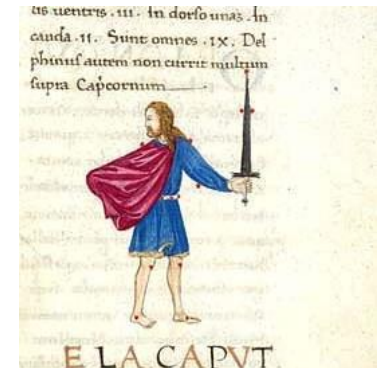 tis uentris .III. In dorso unas. In
cauda .II. Sunt omnes .IX. Del
phinus autem non currit multum
supra Capcornum
E LA CAPVT